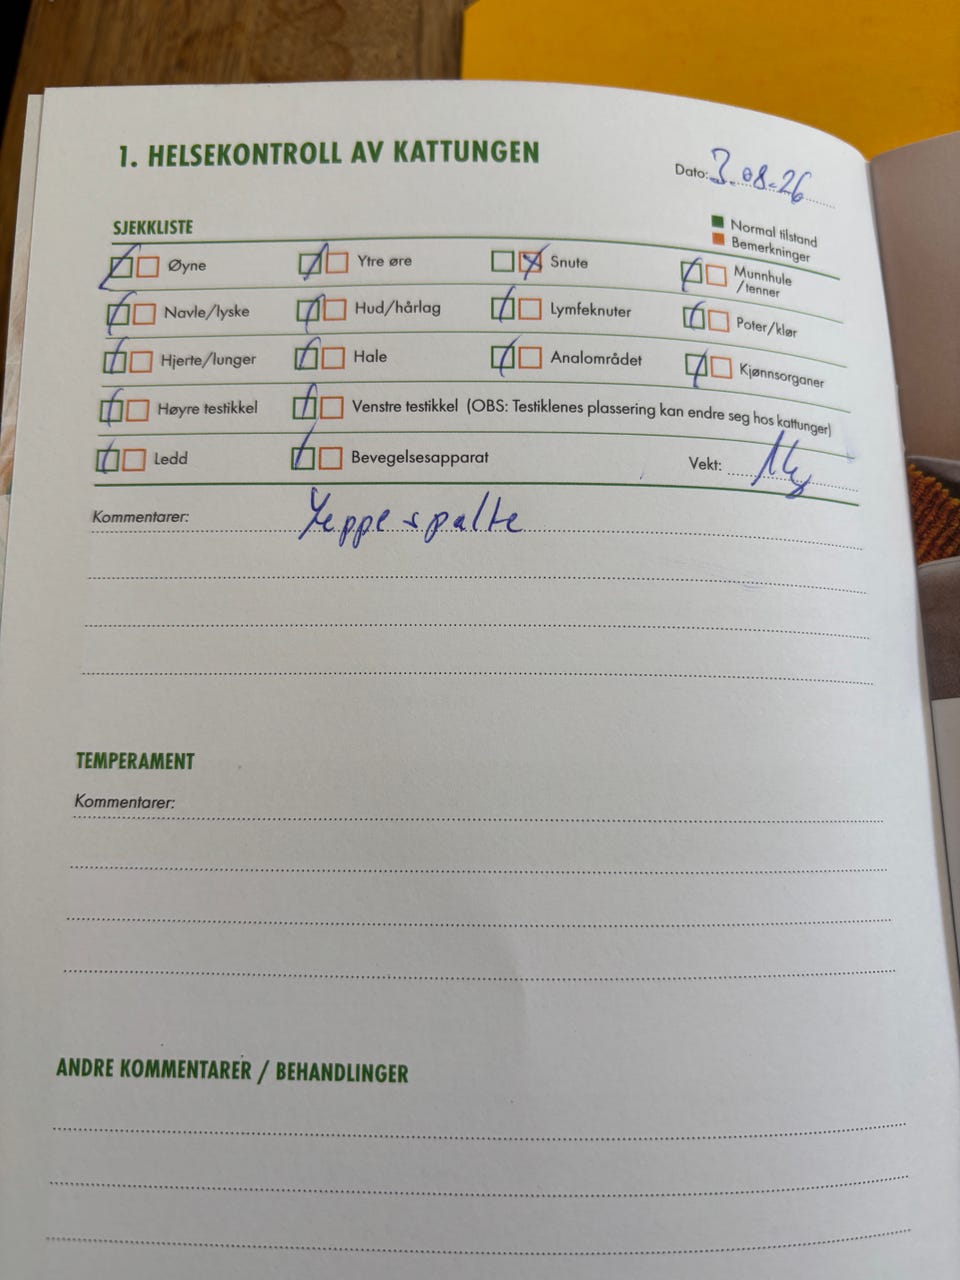 1. HELSEKONTROLL AV KATTUNGEN
Dato: 3.08.26
SJEKKLISTE
Normal tilstand
Bemerkninger
Øyne Ytre øre Snute Munnhule /tenner
Navle/lyske Hud/hårlag Lymfeknuter Poter/klør
Hjerte/lunger Hale Analområdet Kjønnsorganer
Høyre testikkel Venstre testikkel (OBS: Testiklenes plassering kan endre seg hos kattunger)
Ledd Bevegelsesapparat Vekt:
Kommentarer: Leppespalte
TEMPERAMENT
Kommentarer:
ANDRE KOMMENTARER / BEHANDLINGER